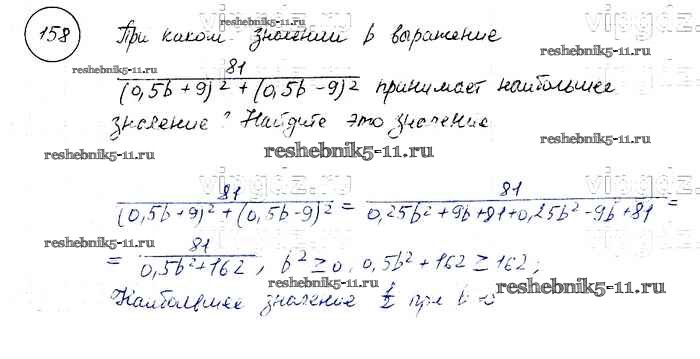 158 При каком значении b выражение
81
(0,5b+9)² + (0,5b-9)² принимает наибольшее
значение? Найдите это значение
81 / (0,5b+9)² + (0,5b-9)² = 81 / 0,25b²+9b+81+0,25b²-9b+81 =
= 81 / 0,5b²+162 , b² ≥ 0, 0,5b²+162 ≥ 162;
Наибольшее значение 1/2 при b =
vipgdz.ru
reshebnik5-11.ru
reshebnik5-11.ru
reshebnik5-11.ru
reshebnik5-11.ru
reshebnik5-11.ru
vipgdz.ru
vipgdz.ru
reshebnik5-11.ru
reshebnik5-11.ru